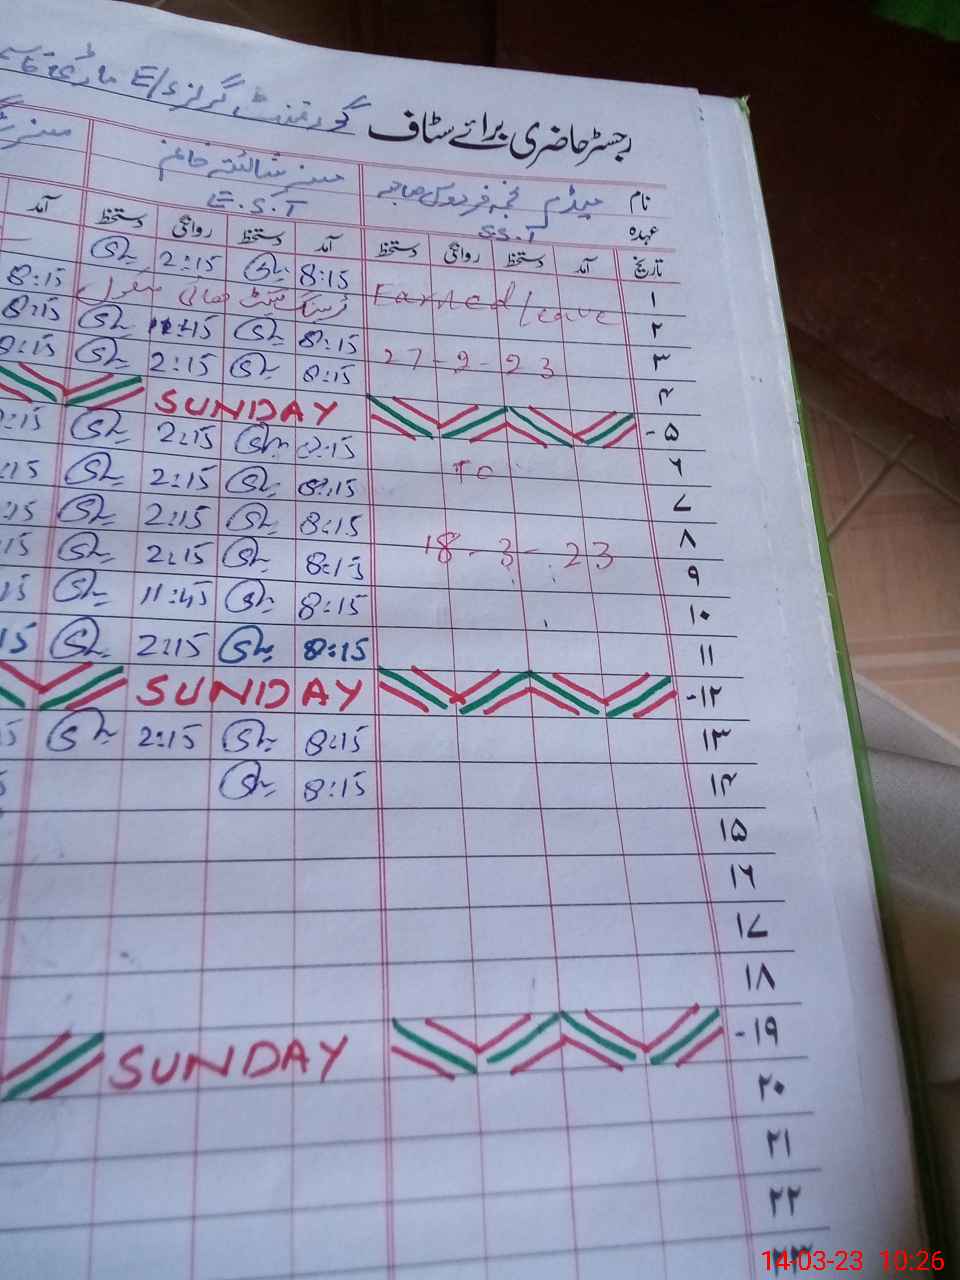 گورنمنٹ گرلز E/S
رجسٹر حاضری برائے سٹاف
نام میڈم نجمہ فردوس صاحبہ مسز شائستہ خانم مسز
عہدہ SS.T E.S.T
تاریخ آمد دستخط روانگی دستخط آمد دستخط روانگی دستخط آمد
۱ 8:15 2:15 8:15
۲ Earned leave
۳ 8:15 11:45 8:15
۴ 27-2-23 8:15 2:15 8:15
۵- SUNDAY
۶ 8:15 2:15 :15
۷ TO 8:15 2:15 :15
۸ 8:15 2:15 :15
۹ 18-3-23 8:15 2:15 15
۱۰ 8:15 11:45 15
۱۱ 8:15 2:15 15
۱۲- SUNDAY
۱۳ 8:15 2:15 5
۱۴ 8:15
۱۵
۱۶
۱۷
۱۸
۱۹- SUNDAY
۲۰
۲۱
۲۲
۲۳
14-03-23 10:26